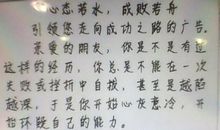 心态若水，成败若舟
引领您走向成功之路的广告。
亲爱的朋友，你是不是有过
这样的经历，你总是不能在一次
失败或挫折中自拔，甚至是越陷
越深，于是你开始心灰意冷，开
始怀疑自己的能力。